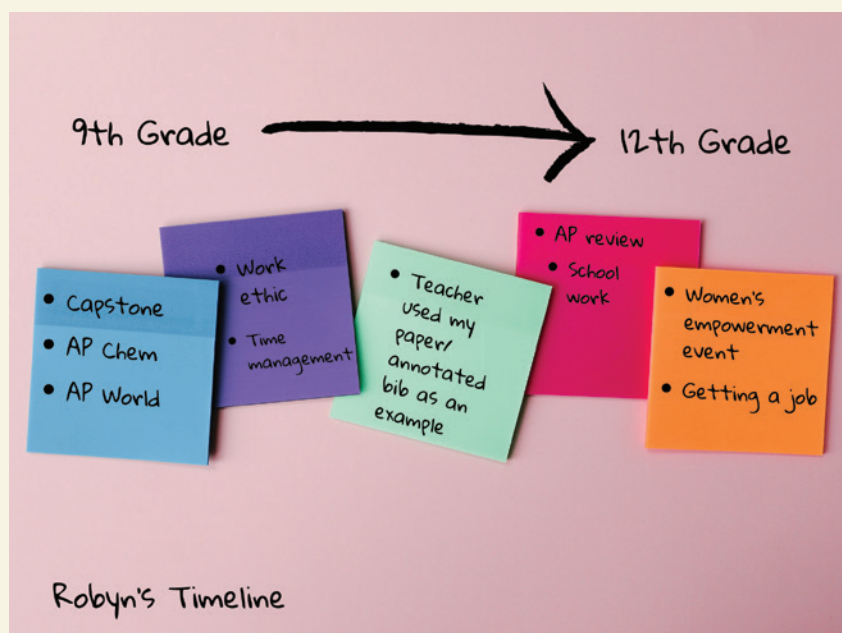 9th Grade
12th Grade
• Capstone
• AP Chem
• AP World
• Work
ethic
• Time
management
• Teacher
used my
paper/
annotated
bib as an
example
• AP review
• School
work
• Women's
empowerment
event
• Getting a job
Robyn's Timeline